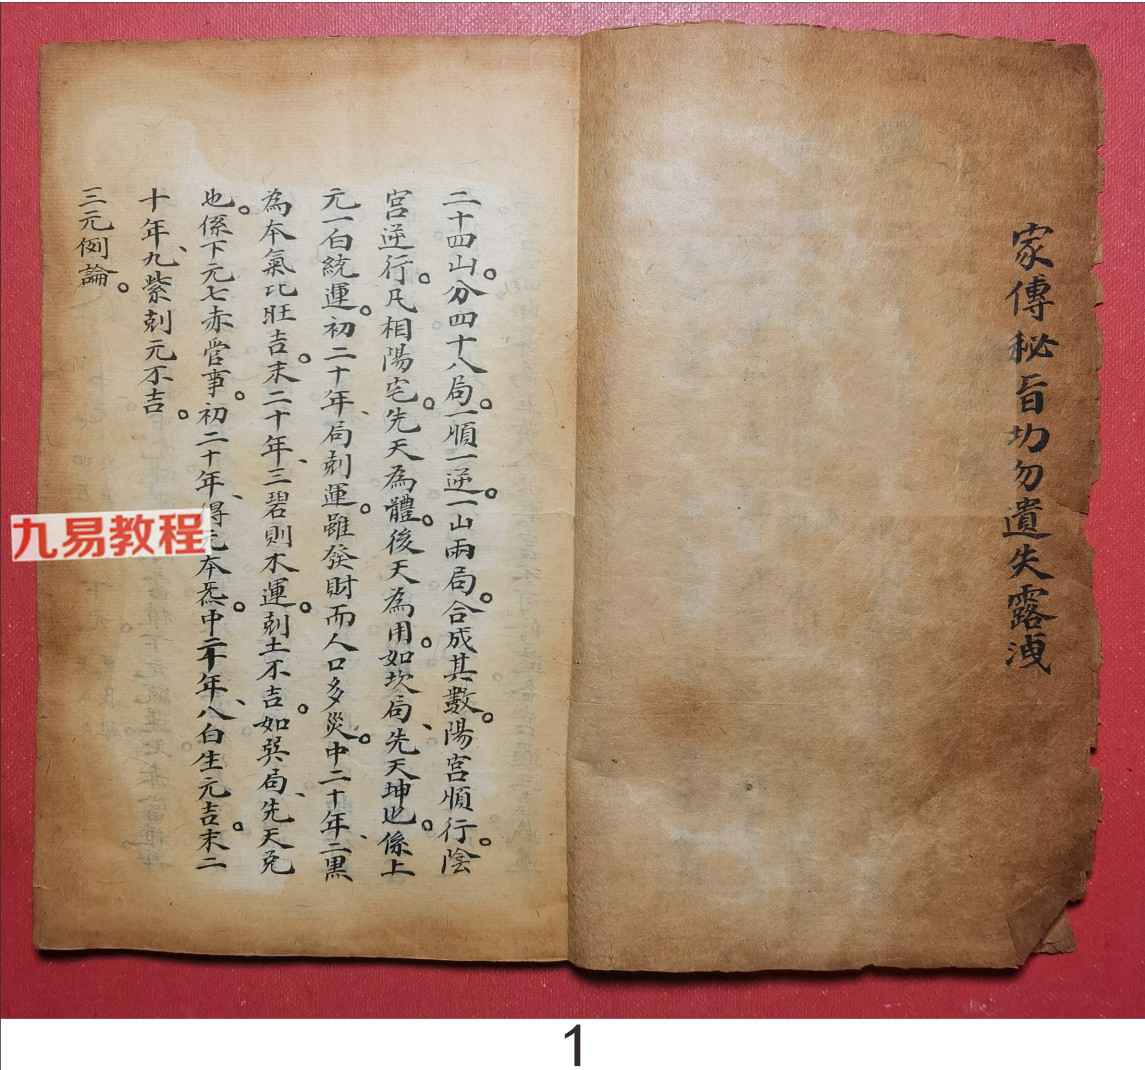 家傳秘旨切勿遺失露洩
二十四山。分四十八局。一順一逆。一山兩局。合成其數。陽宮順行。陰
宮逆行。凡相陽宅。先天為體。後天為用。如坎局、先天坤也。係上
元一白統運。初二十年、局剋運。雖發財而人口多災。中二十年、二黑
為本氣比旺吉。末二十年、三碧則木運。剋土不吉。如巽局、先天兑
也。係下元七赤管事。初二十年、得元本炁。中二十年、八白生元吉。末二
十年、九紫剋元不吉。
三元例論。
九易教程
1